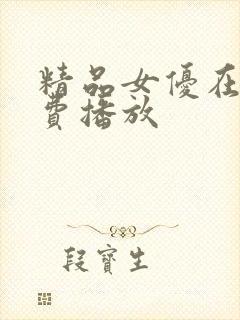 精品女優在
費播放
段寶生